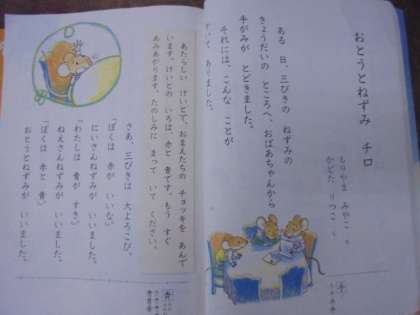 おとうとねずみ チロ
もりやま みやこ 作
かどた りつこ 絵
ある 日、三びきの ねずみの
きょうだいの ところへ、おばあちゃんから
手がみが とどきました。
それには、こんな ことが
かいて ありました。
手
あたらしい けいとで、おまえたちの チョッキを あんで
います。けいとの いろは、赤と 青です。もう すぐ
あみあがります。たのしみに まって いて ください。
さあ、三びきは 大よろこび。
「ぼくは 赤が いいな。」
にいさんねずみが いいました。
「わたしは 青が すき。」
ねえさんねずみが いいました。
「ぼくは 赤と 青。」
おとうとねずみが いいました。
青